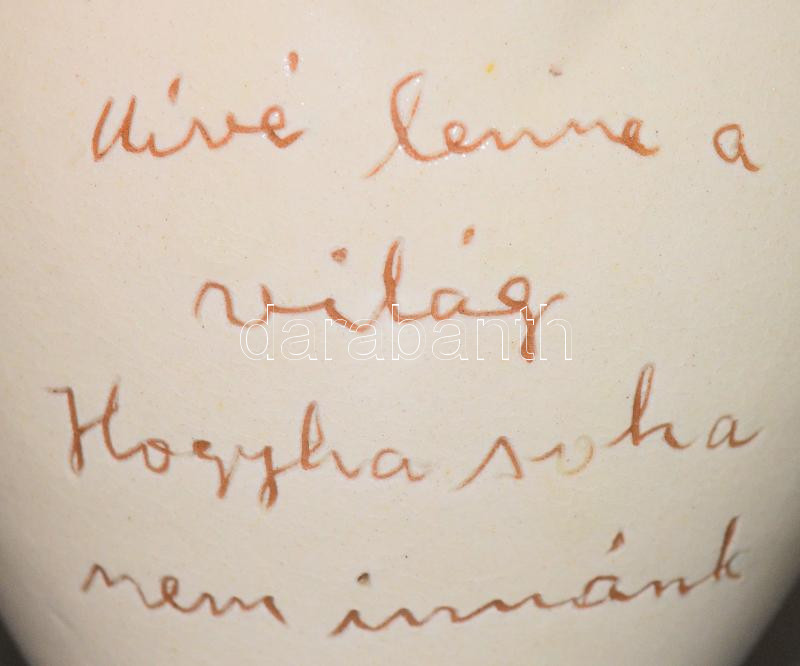 Mivé lenne a
világ
darabanth
Hogyha soha
nem innánk